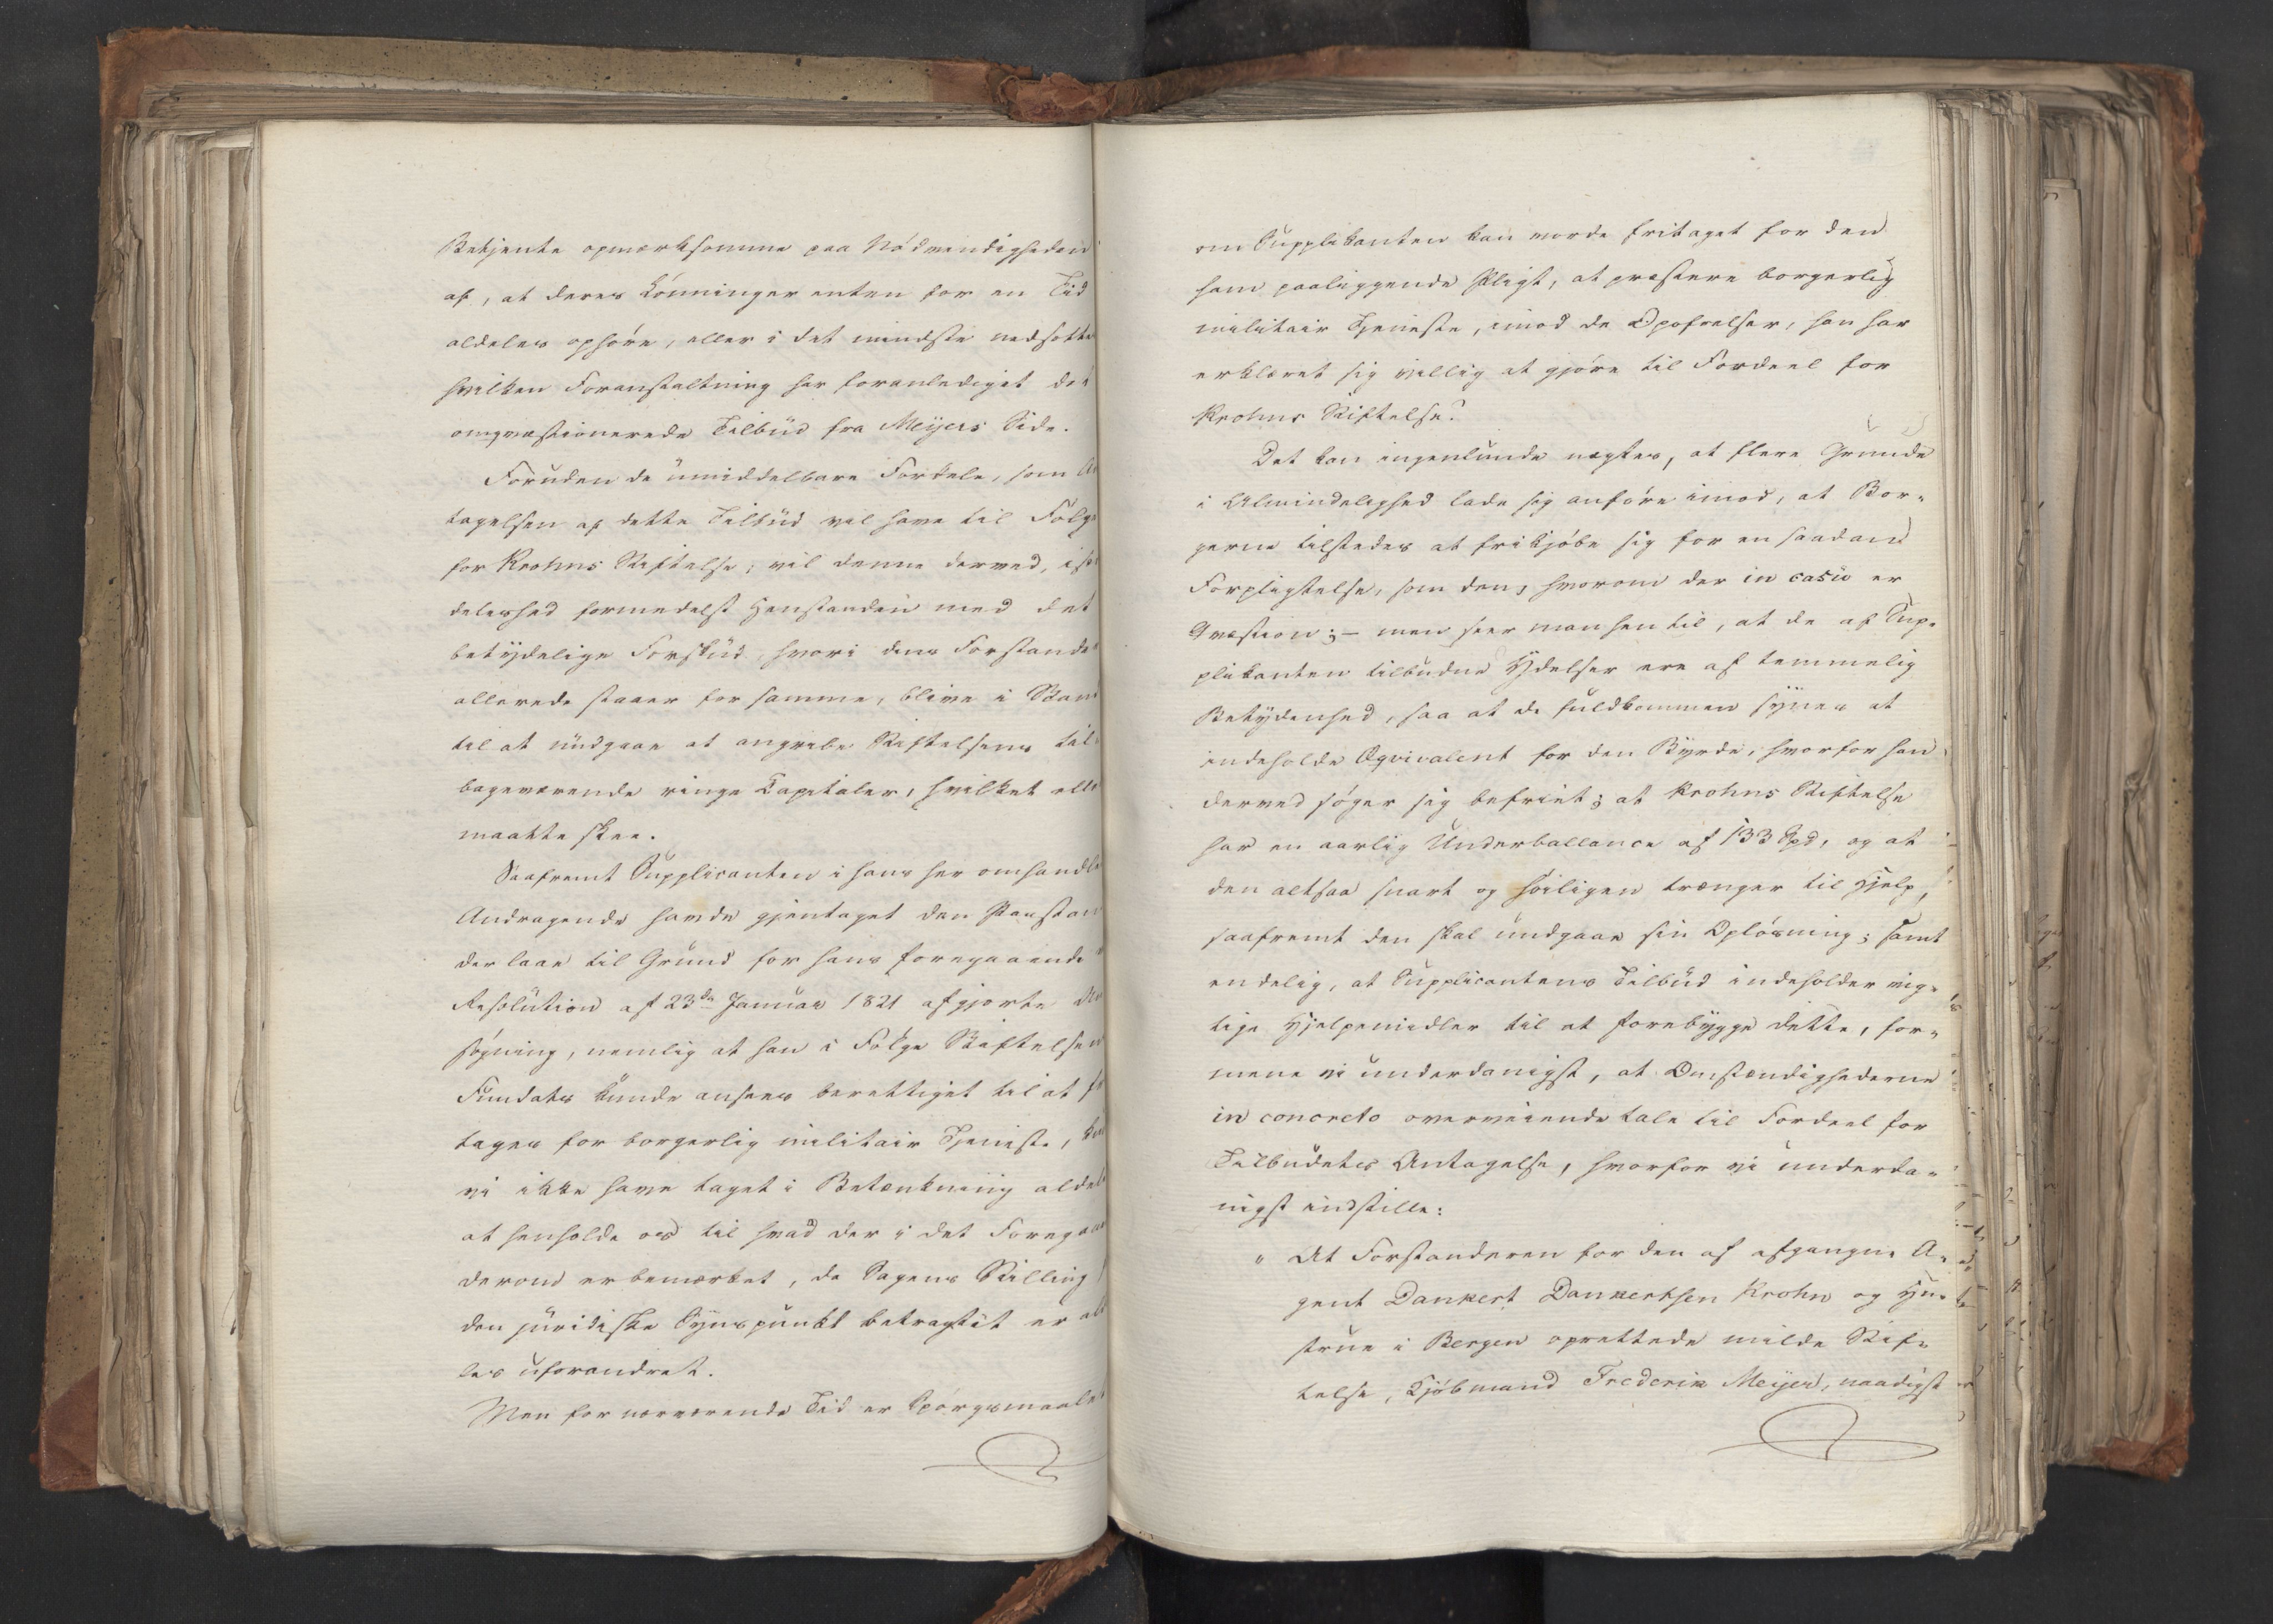 Betjente opmærksomme paa Nödvendigheden
af, at deres Lönninger enten for en Tid
aldeles ophöre, eller i det mindste nedsættes
hvilken Foranstaltning har foranlediget det
omqvæstionerede Tilbud fra Meyers Side.
Foruden de umiddelbare Fordele, som An
tagelsen af dette Tilbud vil have til Fölge
for Krohns Stiftelse, vil denne derved, i sær
deleshed formedelst Henstanden med det
betydelige Forskud, hvori dens Forstander
allerede staaer for samme, blive i Stand
til at undgaae at angribe Stiftelsens til
bageværende ringe Capitaler, hvilket ellers
maatte skee.
Saafremt Supplicanten i hans her omhandlede
Andragende havde gjentaget den Paastand
der laae til Grund for hans foregaaende ved
Resolution af 23de Januar 1821 afgjorte An
sögning, nemlig at han i Fölge Stiftelsens
Fundats kunde ansees berettiget til at fri
tages for borgerlig militair Tjeneste, kunde
vi ikke have taget i Betænkning aldeles
at henholde os til hvad der i det Foregaaende
derom er bemærket, da Sagens Stilling fra
den juridiske Synspunkt betragtet er alde
les uforandret.
Men for nærværende Tid er Spörgsmaalet
om Supplikanten kan vorde fritaget for den
ham paaliggende Pligt, at præstere borgerlig
militair Tjeneste, imod de Opofrelser, han har
erklæret sig villig at gjöre til Fordeel for
Krohns Stiftelse?
Det kan ingenlunde nægtes, at flere Grunde
i Almindelighed lade sig anföre imod, at Bor-
gerne tilstedes at frikjöbe sig for en saadan
Forpligtelse, som den, hvorom der in casu er
Qvæstion; - men seer man hen til, at de af Sup-
plikanten tilbudne Ydelser ere af temmelig
Betydenhed, saa at de fuldkommen synes at
indeholde Æqvivalent for den Byrde, hvorfor han
derved söger sig befriet; at Krohns Stiftelse
har en aarlig Underballance af 133 Spd, og at
den altsaa snart og höiligen trænger til Hjelp,
saafremt den skal undgaae sin Oplösning; samt
endelig, at Supplicantens Tilbud indeholder vig-
tige Hjelpemidler til at forebygge dette, for-
mene vi underdanigst, at Omstændighederne
in concreto overveiende tale til Fordeel for
Tilbudets Antagelse, hvorfor vi underda-
nigst indstille:
" At Forstanderen for den af afgangne A-
gent Dankert Dankertsen Krohn og Hu-
strue i Bergen oprettede milde Stif-
telse, Kjöbmand Frederik Meyer, naadigst